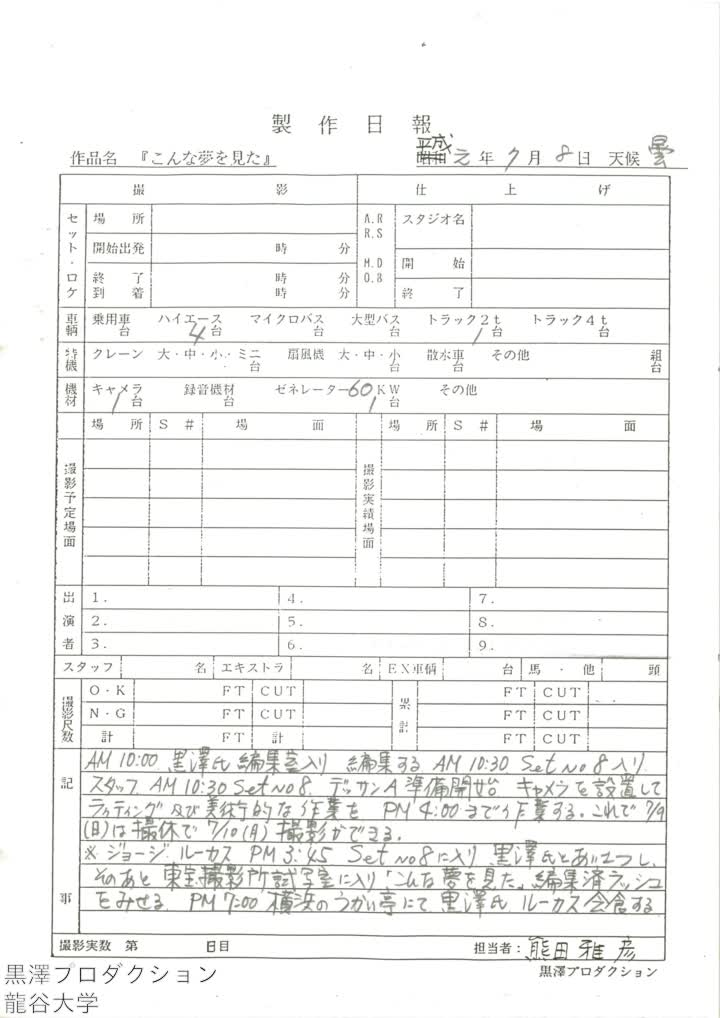 製作日報
作品名 『こんな夢を見た』 平成 元年 7月 8日 天候 曇
撮影 仕上げ
セット・ロケ 場所 A.R R.S M.D O.B スタジオ名
開始出発 時 分
開始
終了 時 分
到着 時 分
終了
車輌 乗用車 台 ハイエース 4台 マイクロバス 台 大型バス 台 トラック2t 1台 トラック4t 台
特機 クレーン 大・中・小・ミニ 台 扇風機 大・中・小 台 散水車 台 その他 組 台
機材 キャメラ 1台 録音機材 台 ゼネレーター60KW 1台 その他
場所 S# 場面 場所 S# 場面
撮影予定場面 撮影実績場面
出演者
1. 4. 7.
2. 5. 8.
3. 6. 9.
スタッフ 名 エキストラ 名 EX車輌 台 馬・他 頭
撮影尺数 O・K FT CUT 累計 FT CUT
N・G FT CUT FT CUT
計 FT 計 FT CUT
記事
AM 10:00 黒澤氏 編集室入り 編集する AM 10:30 Set No 8 入り
スタッフ AM 10:30 Set No 8. デッサンA 準備開始 キャメラを設置して
ライティング 及び美術的な作業を PM 4:00まで作業する。これで 7/9
(日)は撮休で 7/10(月) 撮影ができる.
※ ジョージ.ルーカス PM 3:45 Set No 8に入り 黒澤氏とあいさつし、
そのあと 東宝撮影所試写室に入り「こんな夢を見た」編集済ラッシュ
をみせる PM 7:00 横浜のうかい亭にて 黒澤氏 ルーカス会食する
撮影実数 第 日目 担当者: 熊田雅彦
黒澤プロダクション
黒澤プロダクション
龍谷大学